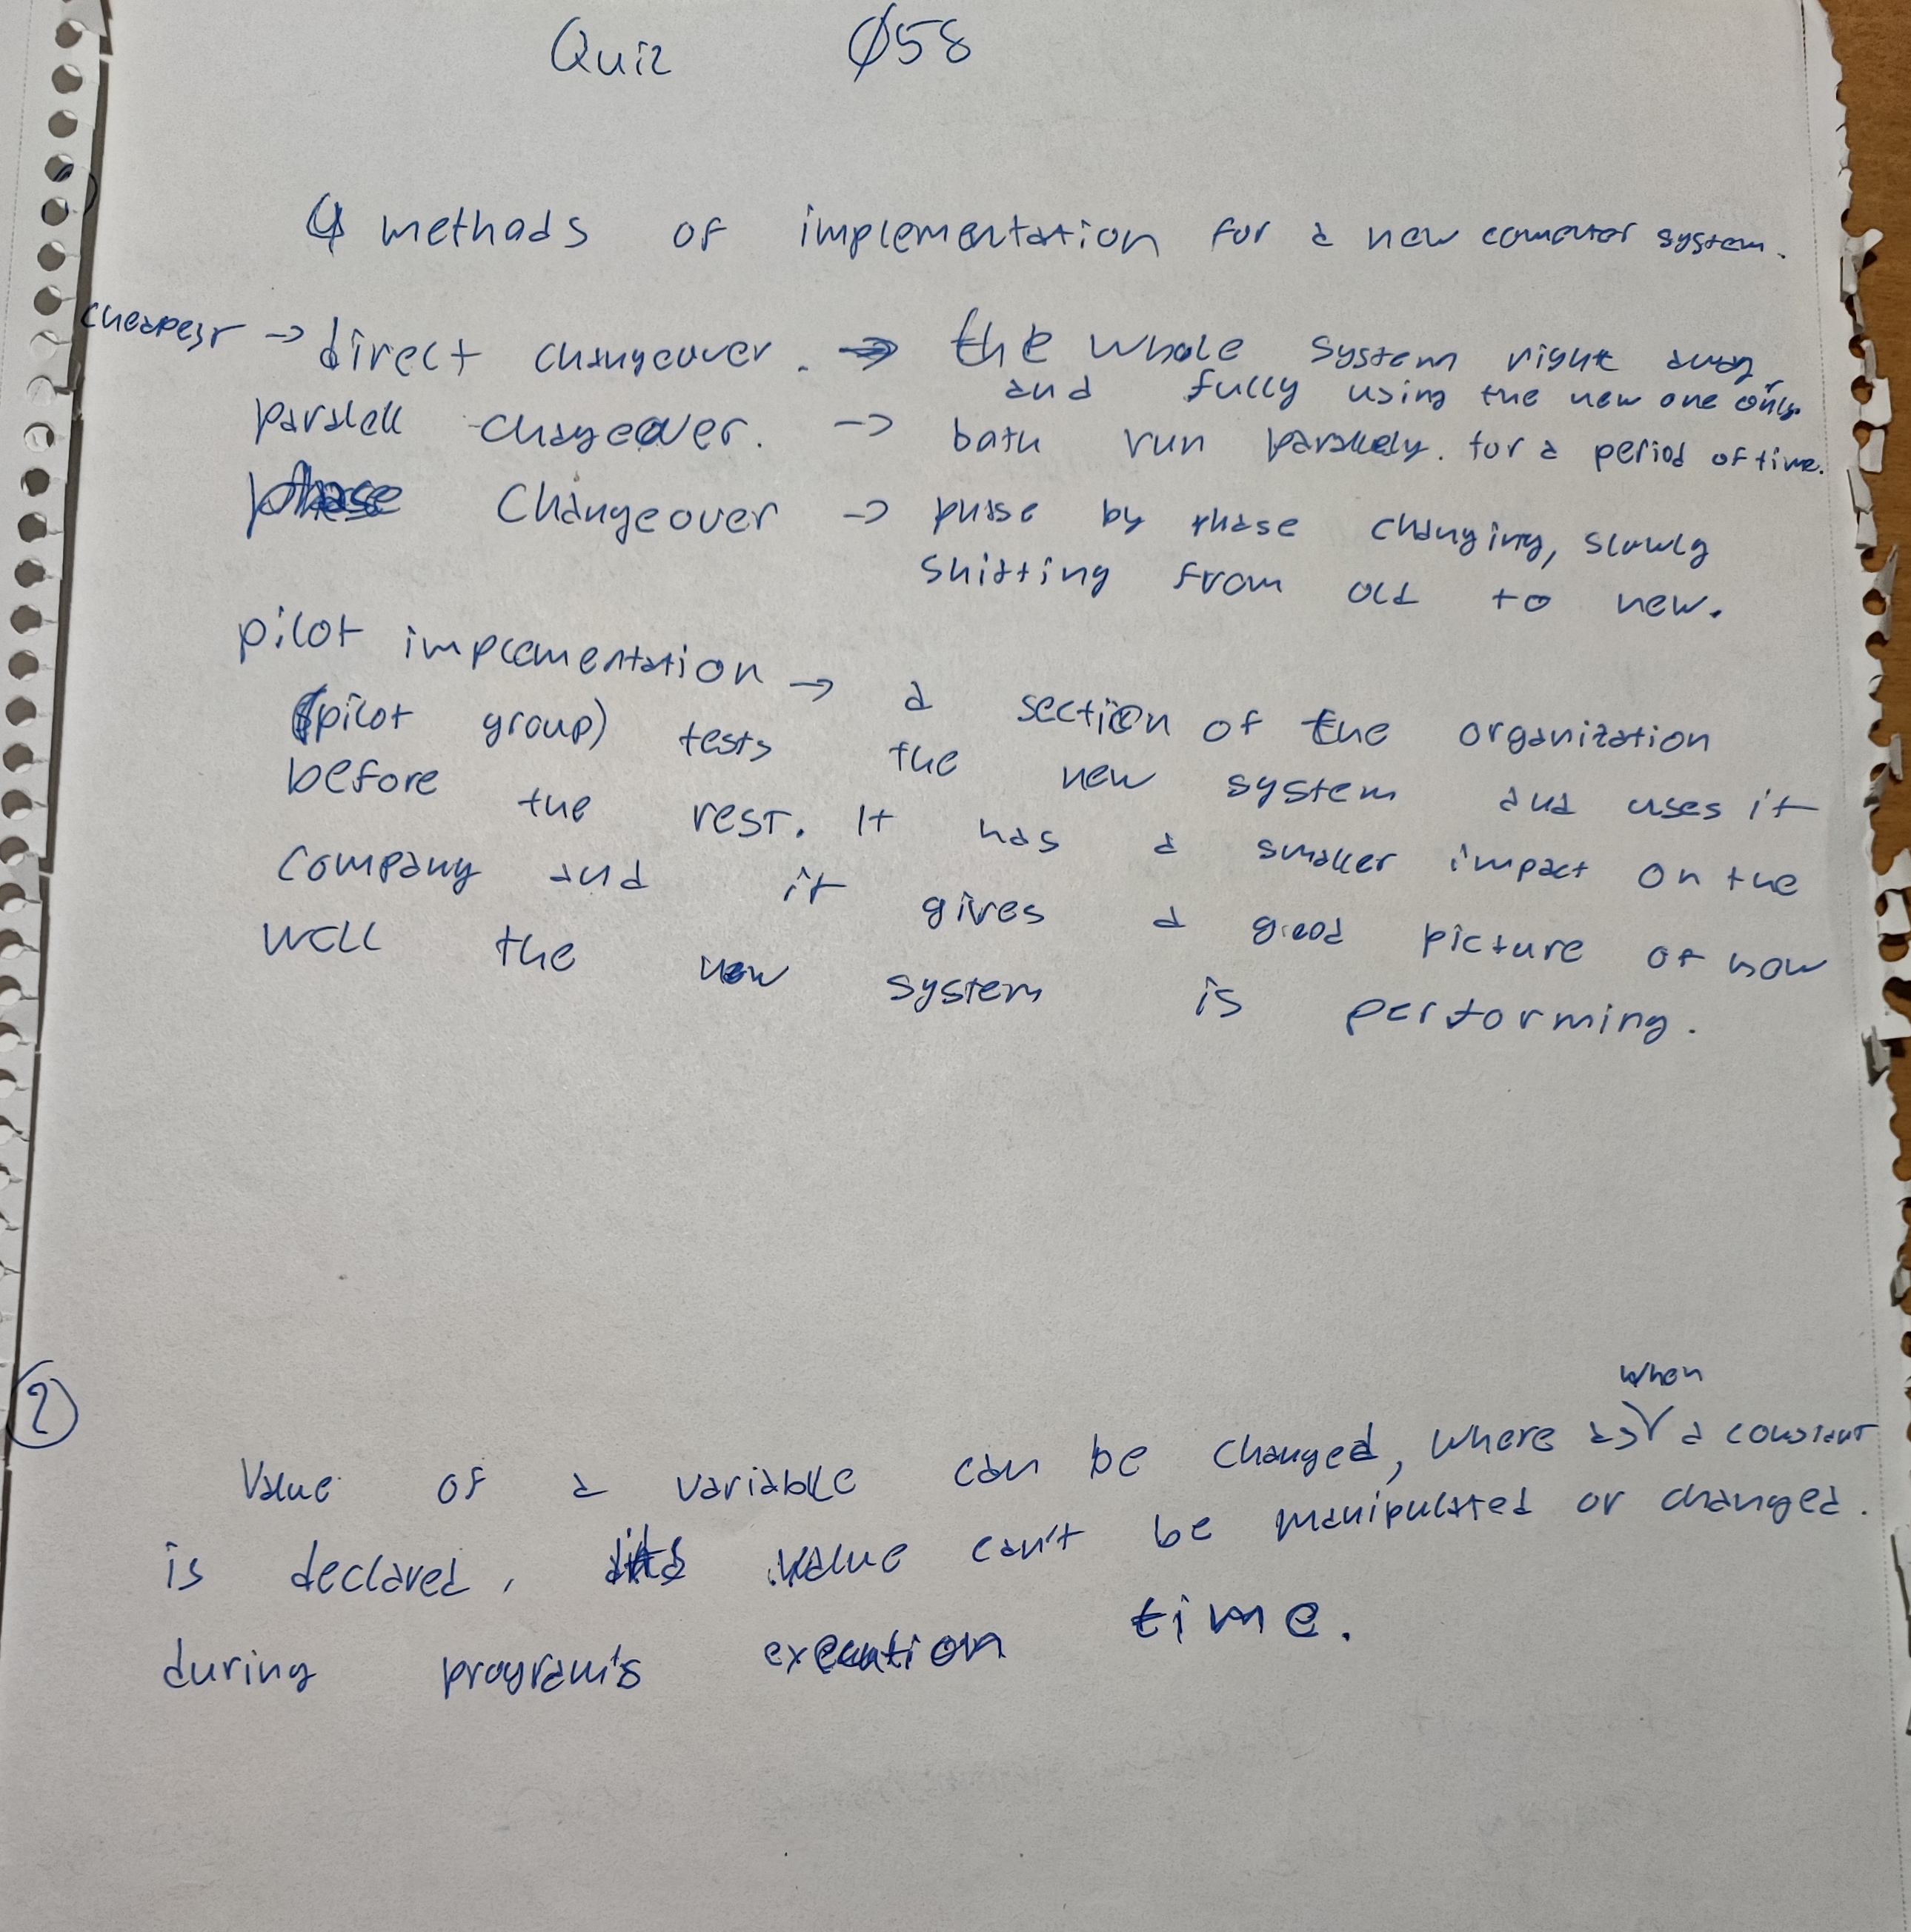 Quiz Ø58
4 methods of implementation for a new computer system.
cheapest → direct changeover. → the whole system right away
and fully using the new one only.
paralell changeover. → both run parallely. for a period of time.
phase Changeover → phase by phase changing, slowly
shifting from old to new.
pilot implementation → a section of the organization
(pilot group) tests the new system and uses it
before the rest. It has a smaller impact on the
company and it gives a good picture of how
well the new system is performing.
2
when
Value of a variable can be changed, where as a constant
is declared, its value can't be manipulated or changed.
during program's execution time.